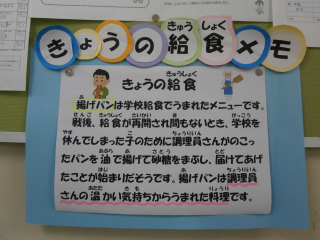 きょうの給食メモ
きょうの給食
揚げパンは学校給食でうまれたメニューです。
戦後、給食が再開され間もないとき、学校を
休んでしまった子のために調理員さんがのこっ
たパンを油で揚げて砂糖をまぶし、届けてあげ
たことが始まりだそうです。揚げパンは調理員
さんの温かい気持ちからうまれた料理です。